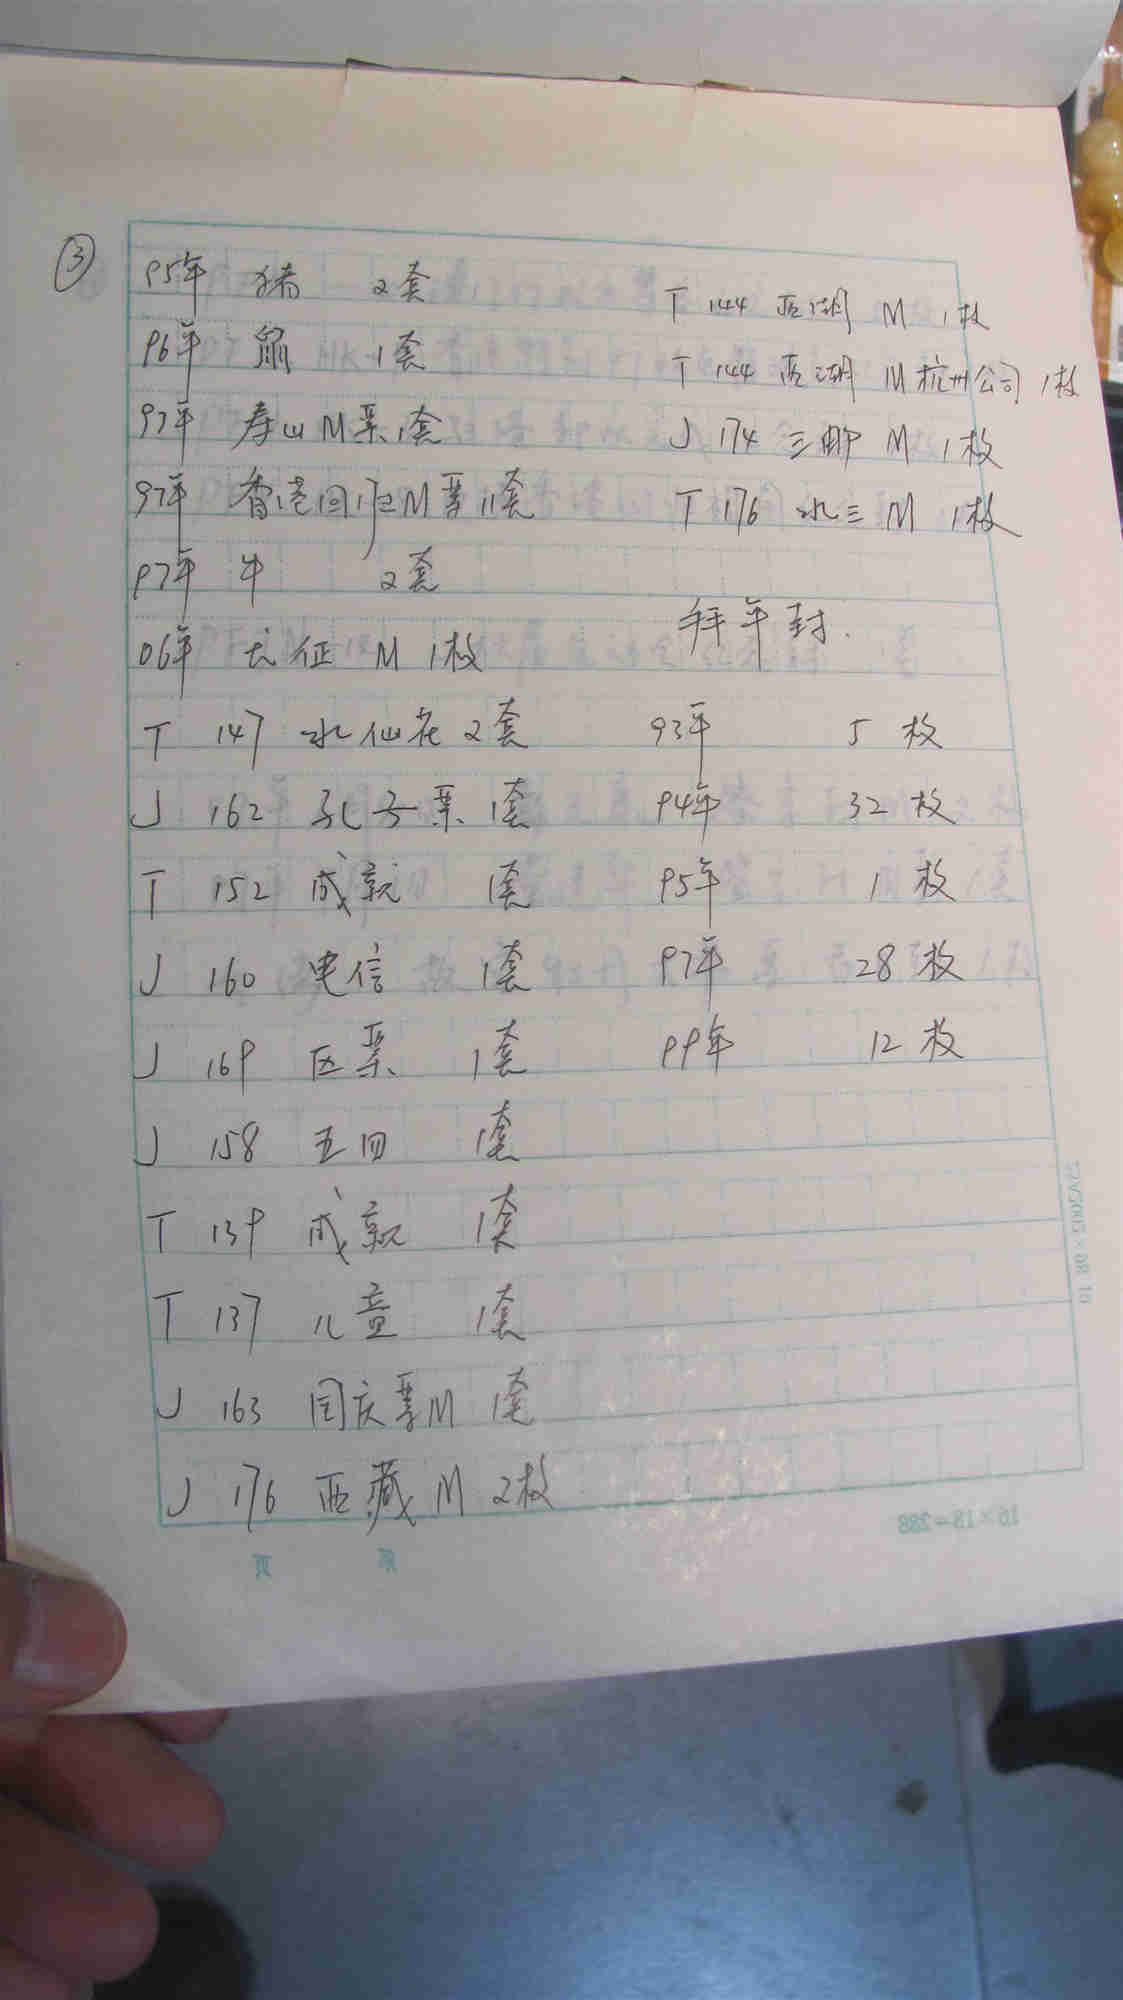 ③
95年 猪 2套
96年 鼠 1套
97年 寿山M票1套
97年 香港回归M票11套
97年 牛 2套
06年 长征 M 1枚
T 147 水仙花 2套
J 162 孔子票 1套
T 152 成就 1套
J 160 电信 1套
J 169 区票 1套
J 158 五四 1套
T 139 成就 1套
T 137 儿童 1套
J 163 国庆票M 1套
J 176 西藏 M 2枚
T 144 西湖 M 1枚
T 144 西湖 M杭州公司 1枚
J 174 三邮 M 1枚
T 176 水三 M 1枚
拜年封.
93年 5 枚
94年 32 枚
95年 1 枚
97年 28 枚
99年 12 枚
16×18=288
页 第